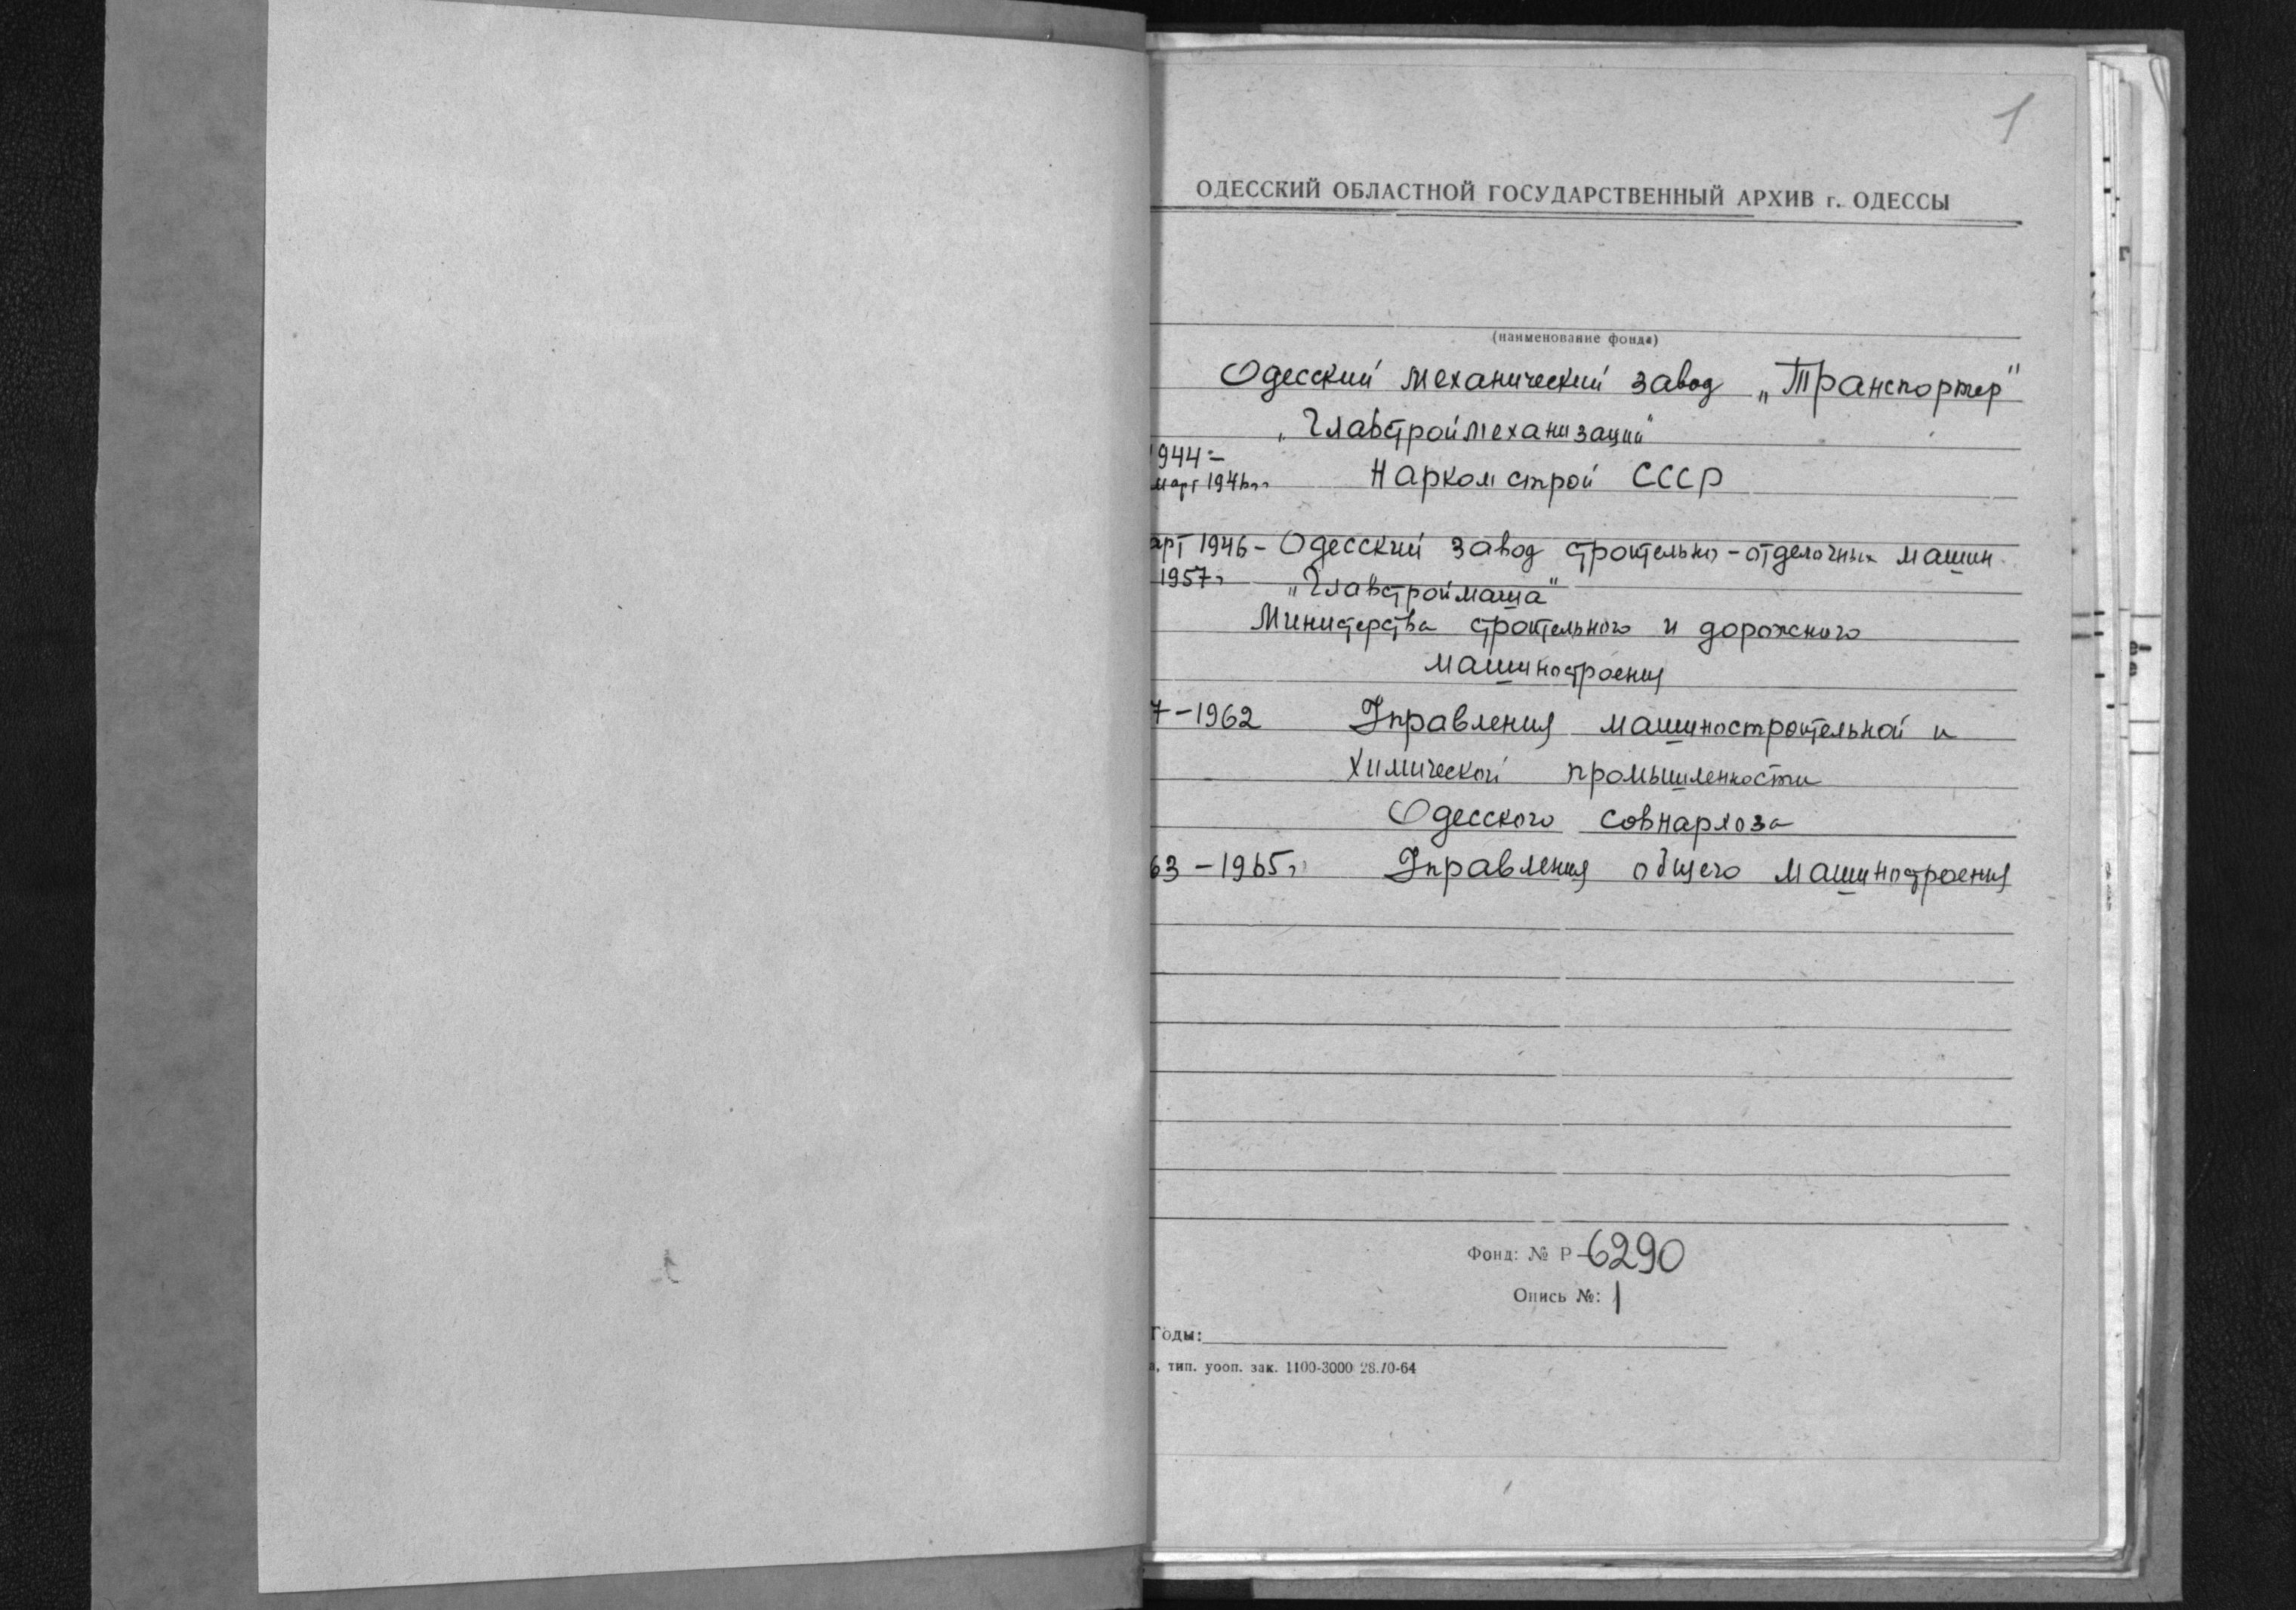 1
ОДЕССКИЙ ОБЛАСТНОЙ ГОСУДАРСТВЕННЫЙ АРХИВ г. ОДЕССЫ
(наименование фонда)
Одесский механический завод „Транспортер"
„Главстроймеханизации"
1944-
март 1946гг Наркомстрой СССР
арт 1946- Одесский завод строительно-отделочных машин
1957г „Главстроймаша"
Министерства строительного и дорожного
машиностроения
7-1962 Управления машиностроительной и
химической промышленности
Одесского совнархоза
63-1965г Управления общего машиностроения
Фонд: № Р-6290
Опись №: 1
Годы:
а, тип. уооп. зак. 1100-3000 28.10-64